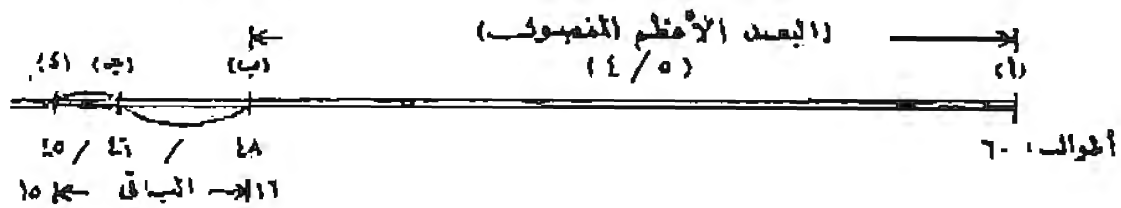 (البعد الأعظم المنصوب)
(٤/٥)
(أ) (ب) (ج) (د)
أطوال: ٦٠ ٤٨ / ٤٦ / ٤٥
١٦ الباقى ١٥